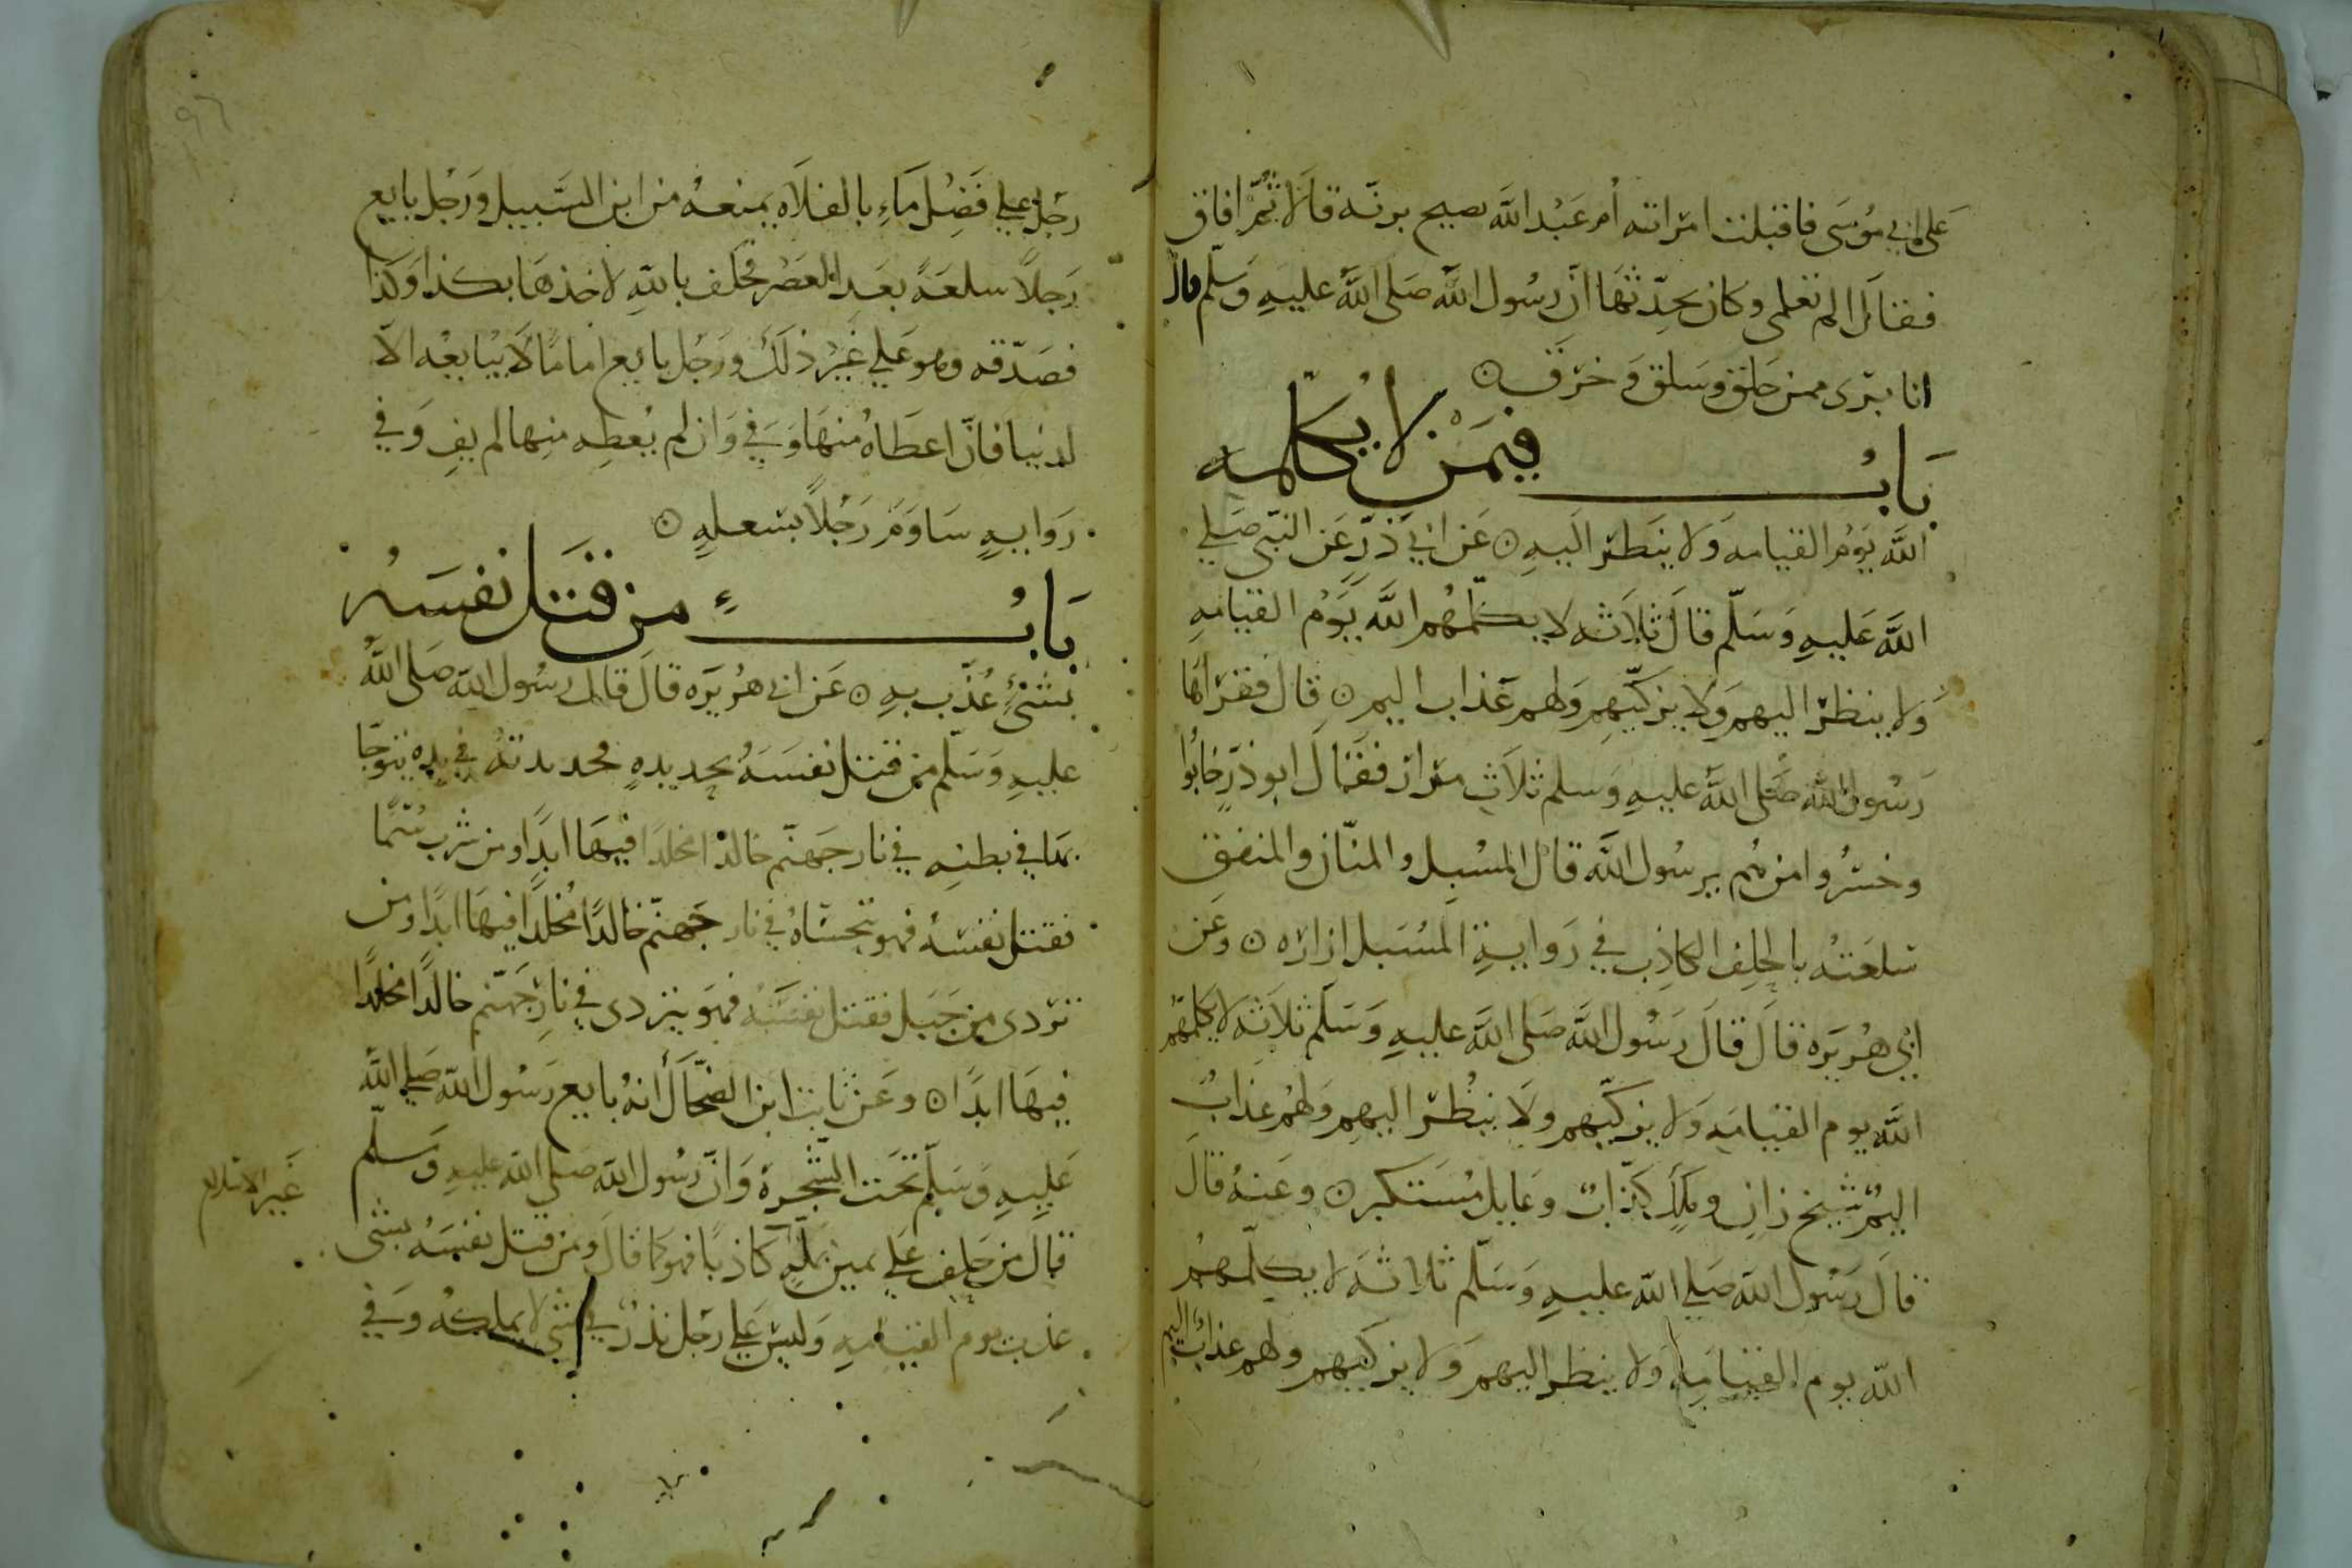 على ابي موسى فاقبلت امراته أم عبد الله تصيح برنة قالا ثم افاق
فقال الم تعلمي وكان يحدثها ان رسول الله صلى الله عليه وسلم قال
انا بري ممن حلق وسلق وخرق
باب فيمن لا يكلمه
الله يوم القيامه ولا ينظر اليه عن ابي ذر عن النبي صلي
الله عليه وسلم قال ثلاثه لا يكلمهم الله يوم القيامه
ولا ينظر اليهم ولا يزكيهم ولهم عذاب اليم قال فقراها
رسول الله صلى الله عليه وسلم ثلاث مرار فقال ابو ذر خابوا
وخسروا من هم يرسول الله قال المسبل والمنان والمنفق
سلعته بالحلف الكاذب في رواية المسبل ازاره وعن
ابي هريره قال قال رسول الله صلى الله عليه وسلم ثلاثه لا يكلمهم
الله يوم القيامه ولا يزكيهم ولا ينظر اليهم ولهم عذاب
اليم شيخ زان وملك كذاب وعايل مستكبر وعنه قال
قال رسول الله صلي الله عليه وسلم ثلاثه لا يكلمهم
الله يوم القيامه ولا ينظر اليهم ولا يزكيهم ولهم عذاب اليم
٩٦
رجل علي فضل ماء بالفلاه يمنعه من ابن السبيل ورجل بايع
رجلا سلعة بعد العصر فحلف بالله لاخذها بكذا وكذا
فصدقه وهو علي غير ذلك ورجل بايع اماما لا يبايعه الا
لدنيا فان اعطاه منها وفي وان لم يعطه منها لم يف وفي
روايه ساوم رجلا بسعله
باب من قتل نفسه
بشئ عذب به عن ابي هريره قال قال رسول الله صلى الله
عليه وسلم من قتل نفسه بحديده فحديدته في يده يتوجا
بها في بطنه في نار جهنم خالدا مخلدا فيها ابدا ومن شرب سما
فقتل نفسه فهو يتحساه في نار جهنم خالدا مخلدا فيها ابدا ومن
تردى من جبل فقتل نفسه فهو يتردى في نار جهنم خالدا مخلدا
فيها ابدا وعن ثابت ابن الضحاك انه بايع رسول الله صلي الله
عليه وسلم تحت الشجرة وان رسول الله صلى الله عليه وسلم
غير الاسلام
قال من حلف علي يمين بملة كاذبا فهو كما قال ومن قتل نفسه بشي
عذب يوم القيامه وليس علي رجل نذر في شي لا يملكه وفي